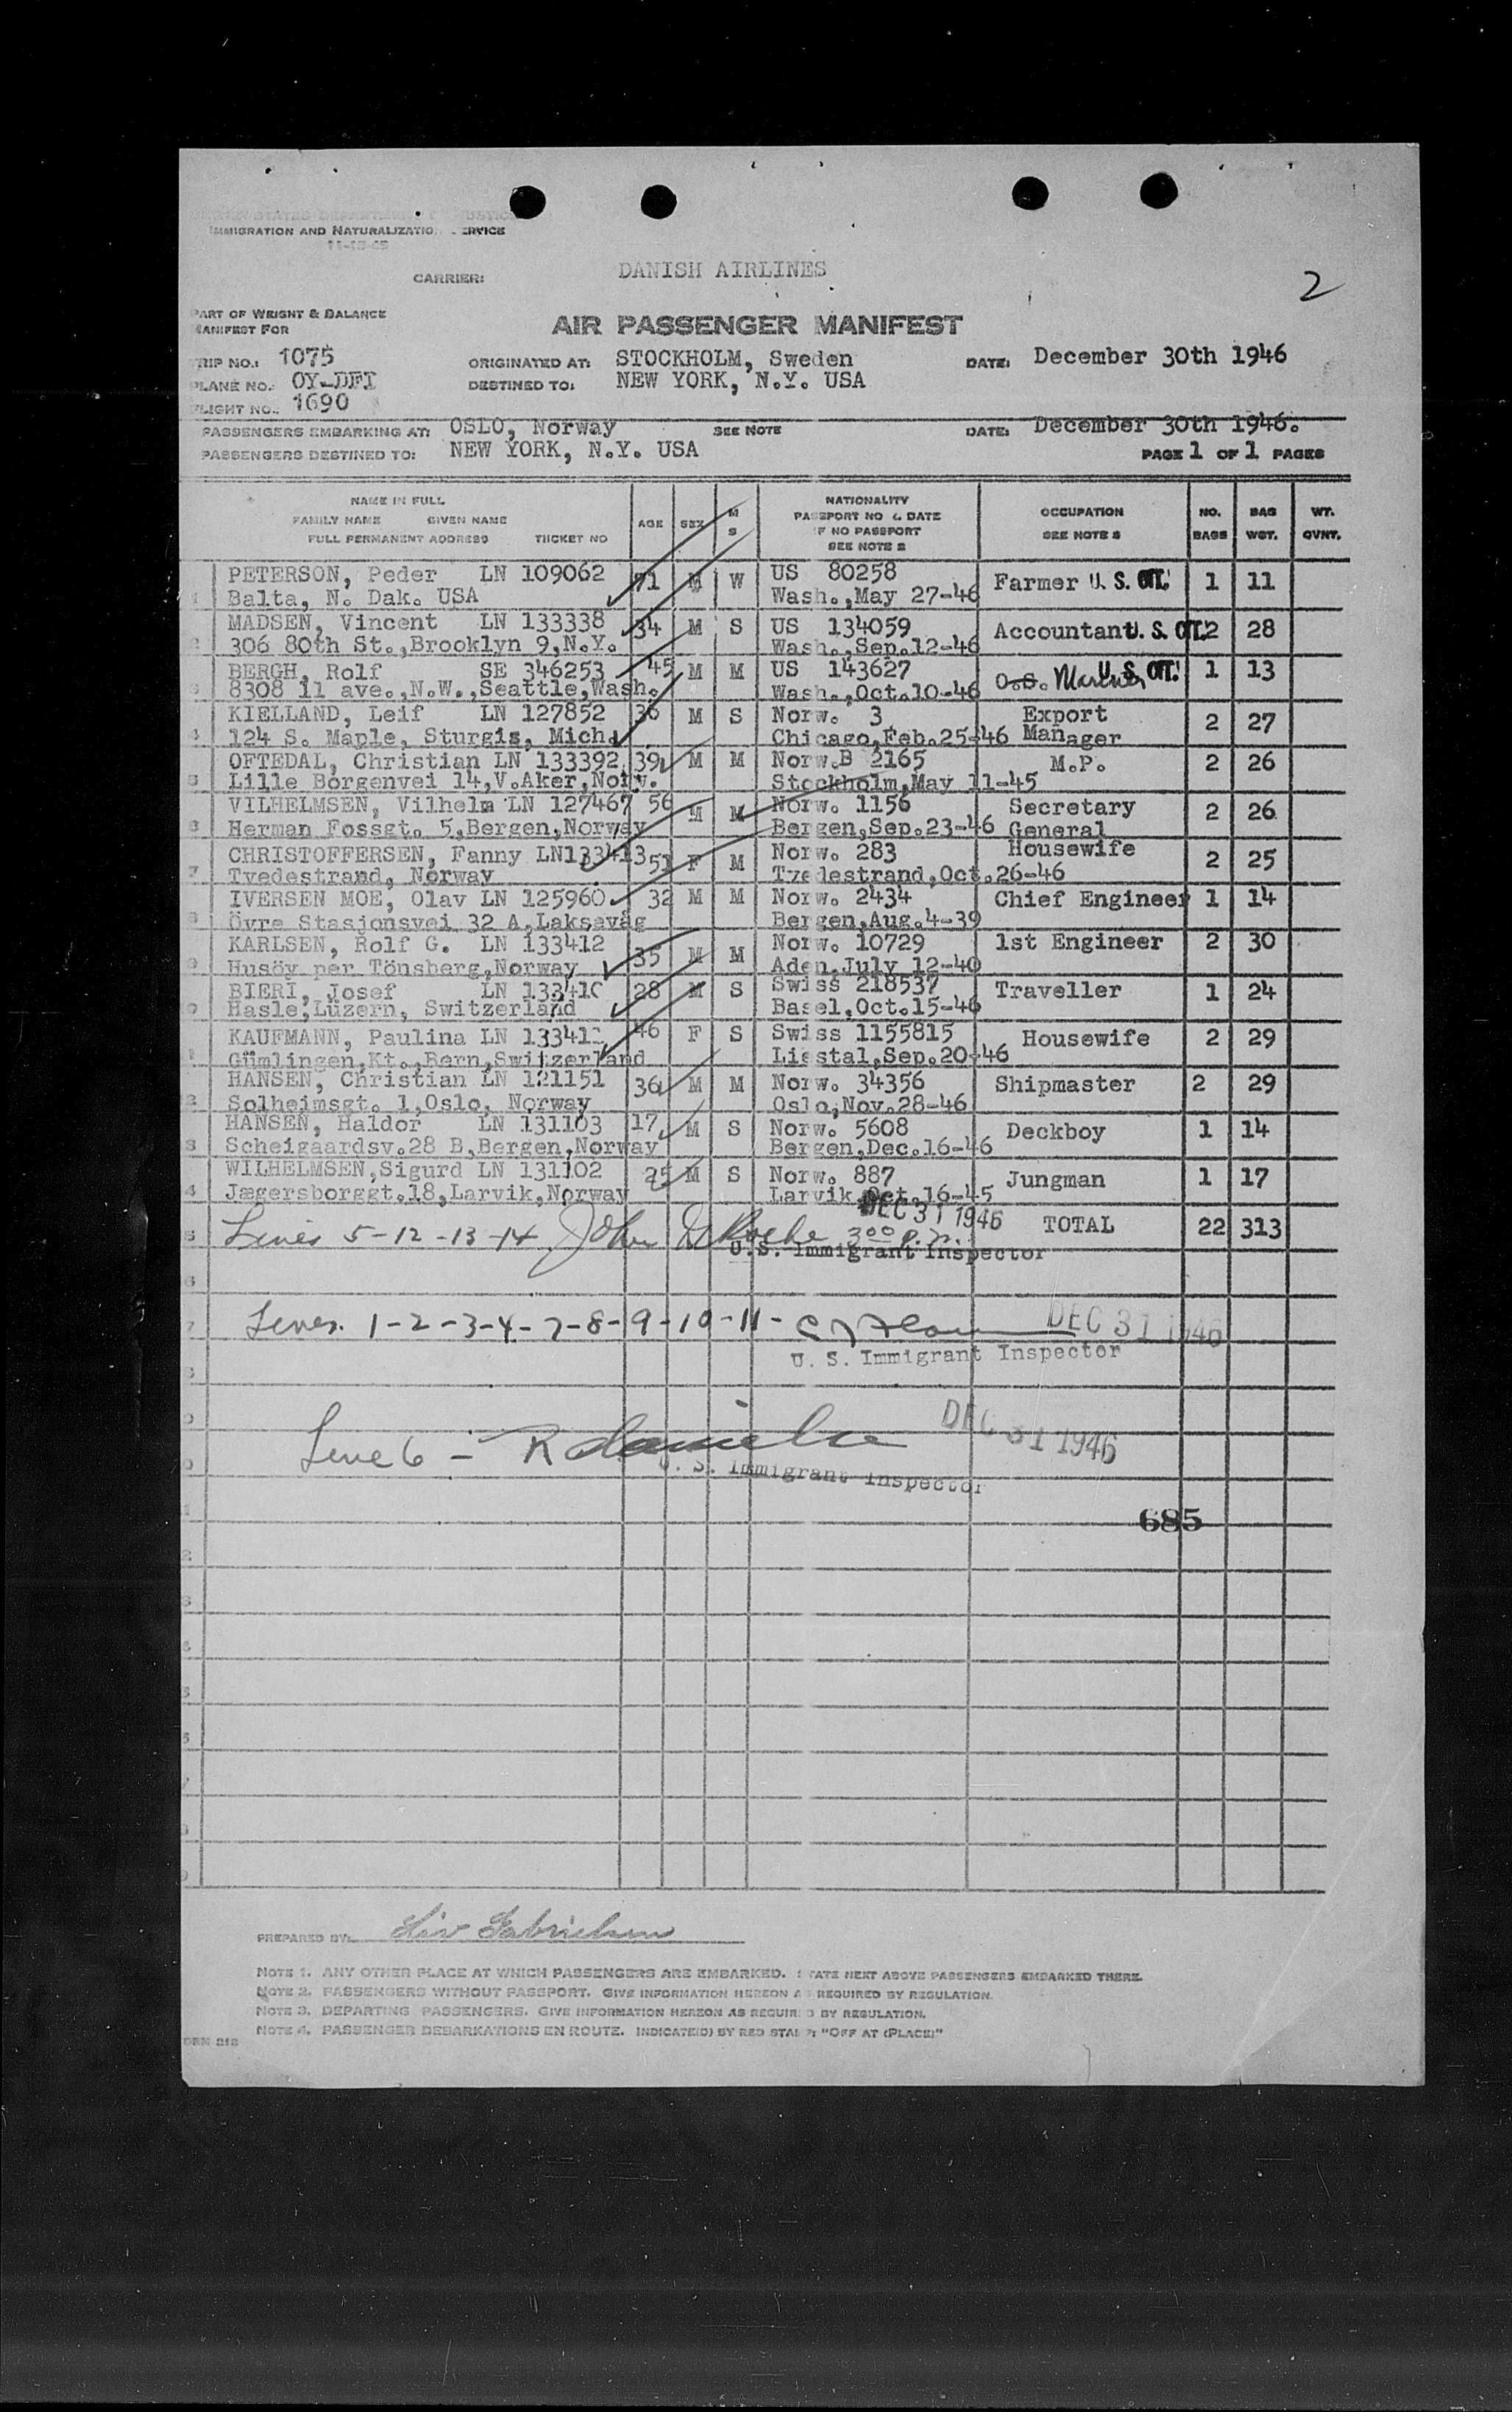 UNITED STATES DEPARTMENT OF JUSTICE
IMMIGRATION AND NATURALIZATION SERVICE
11-15-45
CARRIER: DANISH AIRLINES
2
PART OF WEIGHT & BALANCE
MANIFEST FOR
AIR PASSENGER MANIFEST
TRIP NO.: 1075 ORIGINATED AT: STOCKHOLM, Sweden DATE: December 30th 1946
PLANE NO.: OY-DFI DESTINED TO: NEW YORK, N.Y. USA
FLIGHT NO.: 1690
PASSENGERS EMBARKING AT: OSLO, Norway SEE NOTE DATE: December 30th 1946.
PASSENGERS DESTINED TO: NEW YORK, N.Y. USA PAGE 1 OF 1 PAGES
NAME IN FULL
FAMILY NAME GIVEN NAME
FULL PERMANENT ADDRESS TICKET NO
AGE SEX M S
NATIONALITY
PASSPORT NO & DATE
IF NO PASSPORT
SEE NOTE 2
OCCUPATION
SEE NOTE 3
NO. BAGS
BAG WGT.
WT. QVNT.
PETERSON, Peder LN 109062 71 M W US 80258 Farmer U. S. CIT. 1 11
1 Balta, N. Dak. USA Wash.,May 27-46
MADSEN, Vincent LN 133338 34 M S US 134059 Accountant U. S. CIT. 2 28
2 306 80th St.,Brooklyn 9,N.Y. Wash.,Sep.12-46
BERGH, Rolf SE 346253 45 M M US 143627 O.S. Mariner U. S. CIT. 1 13
3 8308 11 ave.,N.W.,Seattle,Wash. Wash.,Oct.10-46
KIELLAND, Leif LN 127852 36 M S Norw. 3 Export Manager 2 27
4 124 S. Maple, Sturgis, Mich. Chicago,Feb.25-46
OFTEDAL, Christian LN 133392 39 M M Norw.B 2165 M.P. 2 26
5 Lille Borgenvei 14,V.Aker,Norw. Stockholm,May 11-45
VILHELMSEN, Vilhelm LN 127467 56 M M Norw. 1156 Secretary General 2 26
6 Herman Fossgt. 5,Bergen,Norway Bergen,Sep.23-46
CHRISTOFFERSEN, Fanny LN133413 51 F M Norw. 283 Housewife 2 25
7 Tvedestrand, Norway Tvedestrand,Oct.26-46
IVERSEN MOE, Olav LN 125960 32 M M Norw. 2434 Chief Engineer 1 14
8 Övre Stasjonsvei 32 A,Laksevåg Bergen,Aug.4-39
KARLSEN, Rolf G. LN 133412 35 M M Norw. 10729 1st Engineer 2 30
9 Husöy per Tönsberg,Norway Aden,July 12-40
BIERI, Josef LN 133410 28 M S Swiss 218537 Traveller 1 24
0 Hasle,Luzern, Switzerland Basel,Oct.15-46
KAUFMANN, Paulina LN 13341 46 F S Swiss 1155815 Housewife 2 29
1 Gümlingen,Kt.,Bern,Switzerland Liestal,Sep.20-46
HANSEN, Christian LN 121151 36 M M Norw. 34356 Shipmaster 2 29
2 Solheimsgt. 1,Oslo, Norway Oslo,Nov.28-46
HANSEN, Haldor LN 131103 17 M S Norw. 5608 Deckboy 1 14
3 Scheigaardsv.28 B,Bergen,Norway Bergen,Dec.16-46
WILHELMSEN,Sigurd LN 131102 25 M S Norw. 887 Jungman 1 17
4 Jægersborggt.18,Larvik,Norway Larvik,Oct.16-45
DEC 31 1946
5 Lines 5-12-13-14 John 3 00 p.m. TOTAL 22 313
U.S. Immigrant Inspector
Lines 1-2-3-4-7-8-9-10-11- DEC 31 1946
U. S. Immigrant Inspector
Line 6 - DEC 31 1946
U. S. Immigrant Inspector
685
PREPARED BY: Liv Gabrielsen
NOTE 1. ANY OTHER PLACE AT WHICH PASSENGERS ARE EMBARKED. STATE NEXT ABOVE PASSENGERS EMBARKED THERE.
NOTE 2. PASSENGERS WITHOUT PASSPORT. GIVE INFORMATION HEREON AS REQUIRED BY REGULATION.
NOTE 3. DEPARTING PASSENGERS. GIVE INFORMATION HEREON AS REQUIRED BY REGULATION.
NOTE 4. PASSENGER DEBARKATIONS EN ROUTE. INDICATE(D) BY RED STAMP "OFF AT (PLACE)"